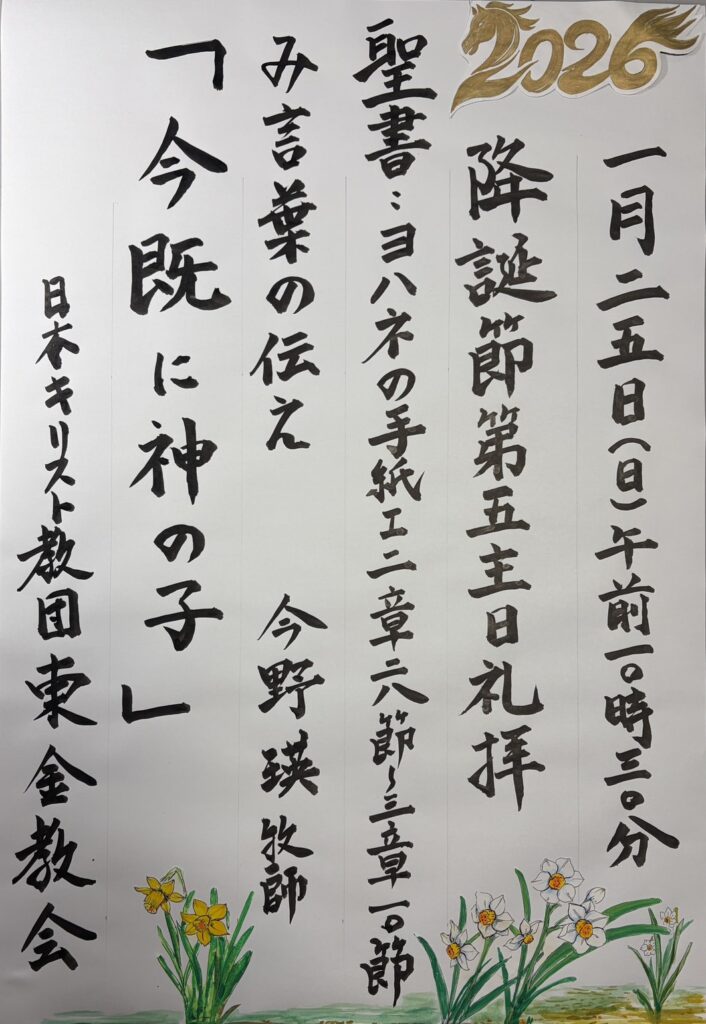 2026
一月二五日(日)午前一〇時三〇分
降誕節第五主日礼拝
聖書:ヨハネの手紙Ⅰ二章二八節~三章一〇節
み言葉の伝え 今野瑛牧師
「今既に神の子」
日本キリスト教団東金教会